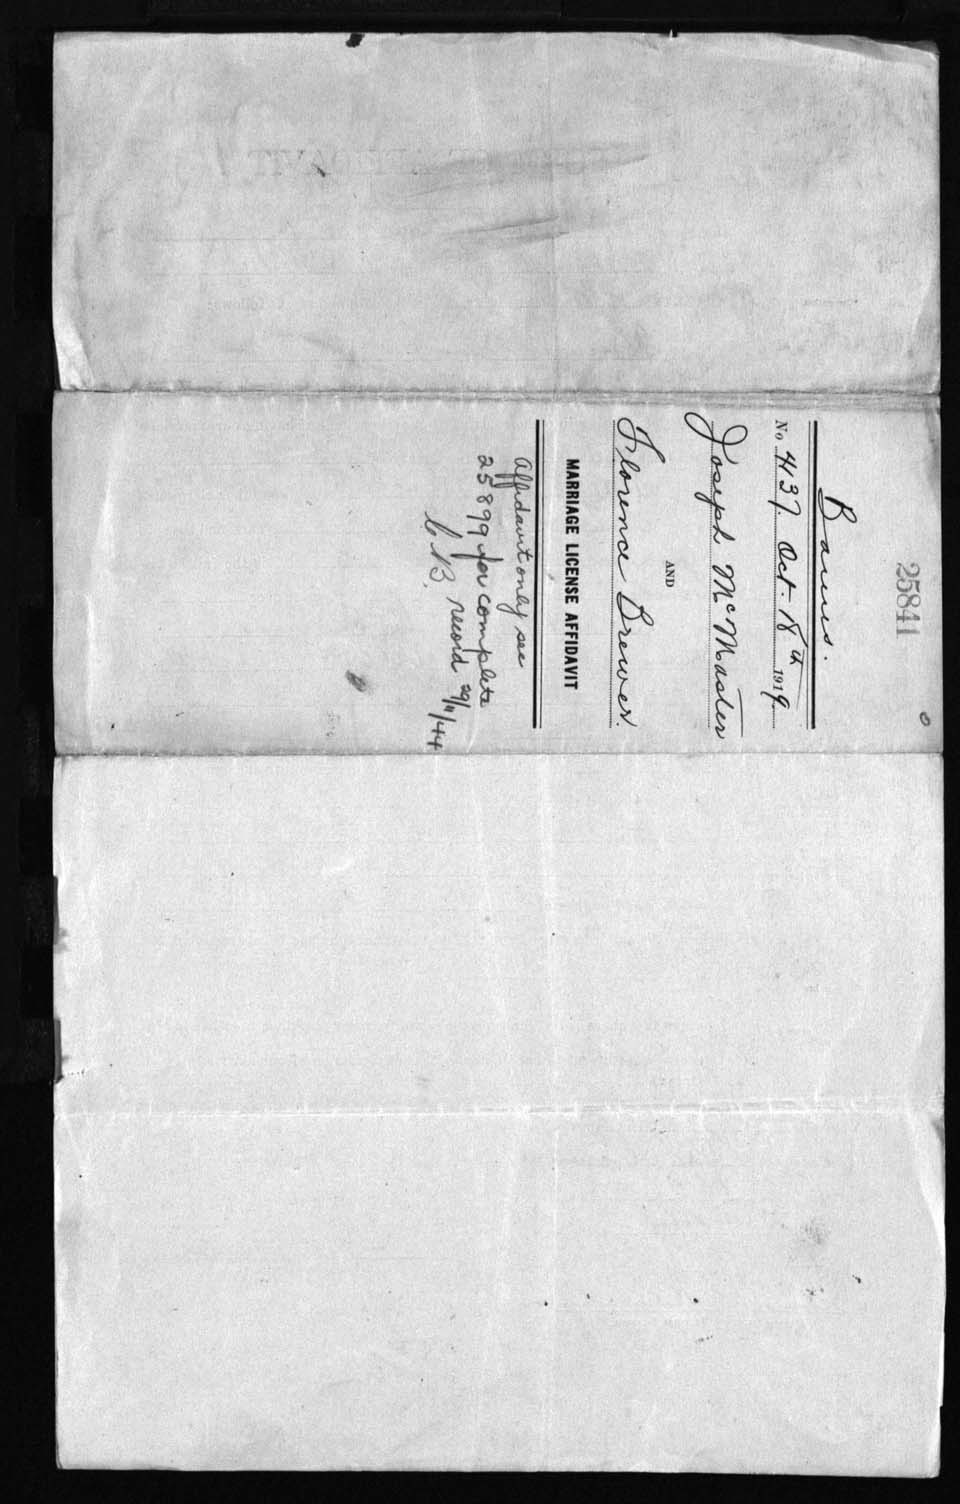 25841
Banns.
No 4137. Oct. 18th 1919
Joseph McMaster
AND
Florence Brewer.
MARRIAGE LICENSE AFFIDAVIT
Affidavit only see
25899 for complete
record 29/11/44